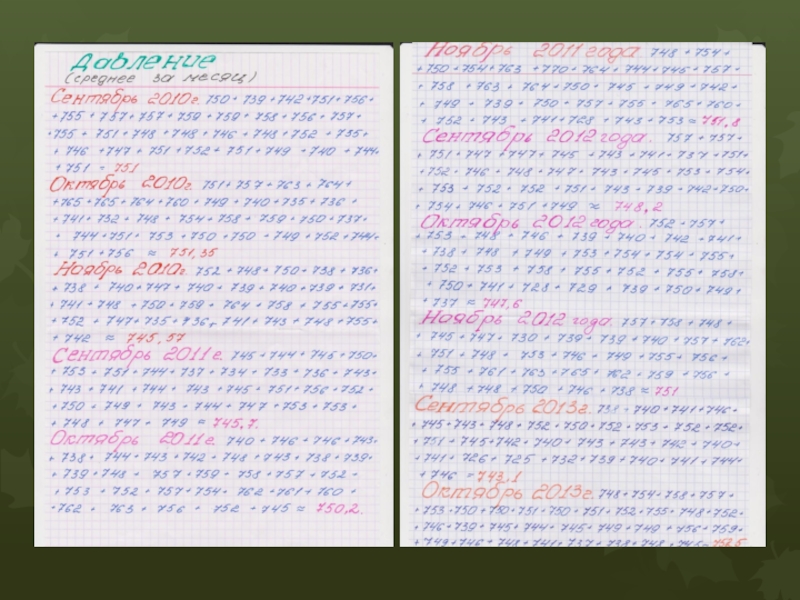 Давление
(среднее за месяц)
Сентябрь 2010г. 750+ 739 +742+751+756+
+755 + 757+ 757 + 759 + 759 + 758 + 756 + 757+
+755 + 751 + 748 + 748 + 746 + 748 + 752 + 735+
+ 746 +747 + 751 +752+ 751 +749 +740 +744+
+751 = 751
Октябрь 2010г. 751+757+763+764+
+765+765+764+760+749+740+735+736+
+741+732+748+754+758+759+750+737+
+ 744+751+ 753+750+750+749+752+744+
+ 751+756 ≈ 751,35
Ноябрь 2010г. 752+748+750+738+736+
+738+740+747+740+739+740+739+731+
+741+748+750+759+764+758+755+755+
+752+747+735+736+741+743+748+755+
+742 ≈ 745,57
Сентябрь 2011г. 745+744+745+750+
+753+751+744+737+734+733+736+743+
+743+741+744+743+745+751+756+752+
+750+749+743+744+747+753+753+
+748+747+749 = 745,7.
Октябрь 2011г. 740+746+746+743+
+738+744+743+742+748+743+738+739+
+739+748+757+759+758+757+752+
+753+752+757+754+762+761+760+
+762+763+756+752+745 ≈ 750,2.
Ноябрь 2011 года 748+754+
+750+754+763+770+764+744+745+757+
+758+763+764+750+745+749+742+
+749+739+750+757+755+765+760+
+752+743+741+728+743+753 ≈ 751,8
Сентябрь 2012 года. 757+757+
+751+747+747+745+743+741+737+751+
+752+746+748+747+743+745+753+754+
+753+752+752+751+743+739+742+750+
+734+746+751+749 ≈ 748,2
Октябрь 2012 года. 752+757+
+753+748+746+739+740+742+741+
+738+748+749+753+754+754+755+
+752+753+758+755+752+755+758+
+750+741+728+729+739+750+749+
+737 ≈ 747,6
Ноябрь 2012 года. 757+758+748+
+745+747+730+739+739+740+757+762+
+751+748+753+746+749+755+756+
+755+761+763+765+762+759+756+
+748+748+750+746+738 ≈ 751
Сентябрь 2013г. 740+741+746+
+745+743+748+752+750+752+753+752+752+
+751+745+742+740+743+743+742+740+
+741+726+725+732+739+740+741+744+
+746 = 743,1
Октябрь 2013г. 748+754+758+757+
+753+750+750+751+750+751+752+755+748+752+
+746+739+745+744+745+749+749+756+759+
+749+746+748+741+737+738+748+748=